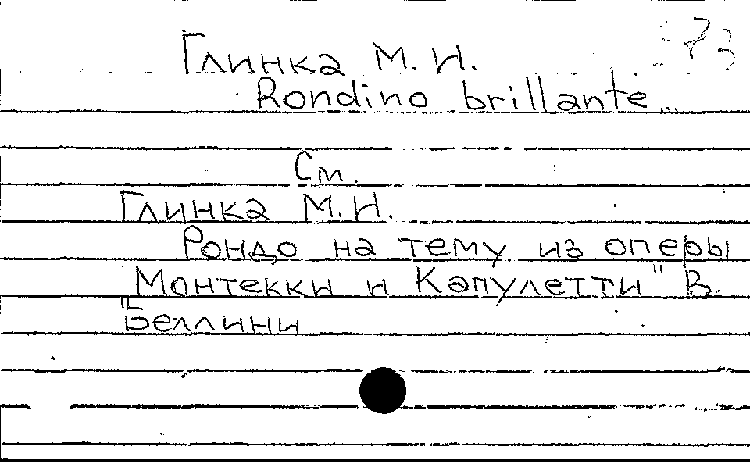 Глинка М. И.
Rondino brillante..
См.
Глинка М. И.
Рондо на тему из оперы
"Монтекки и Капулетти" В.
Беллини